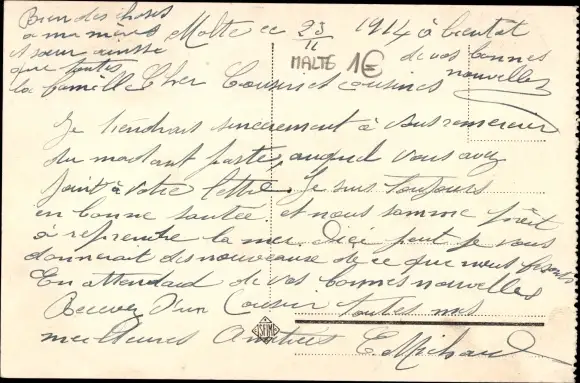 Bien des choses
a ma mère
et soeur ainsi
que toute
la famille
Malte ce 23/11 1914 à bientot
de vos bonnes
nouvelles
MALTE 1€
Cher Cousin et cousines
Je tiendrais sincerement à vous remercier
du mandant poste, auquel vous avez
joint à votre lettre. Je suis toujours
en bonne santée et nous somme prêt
à reprendre la mer. D'ici peut je vous
donnerait des nouveause de ce que nous
En attendand de vos bonnes nouvelles
Recevez d'un Cousin toutes mes
meilleures Amitiés E. Michaud